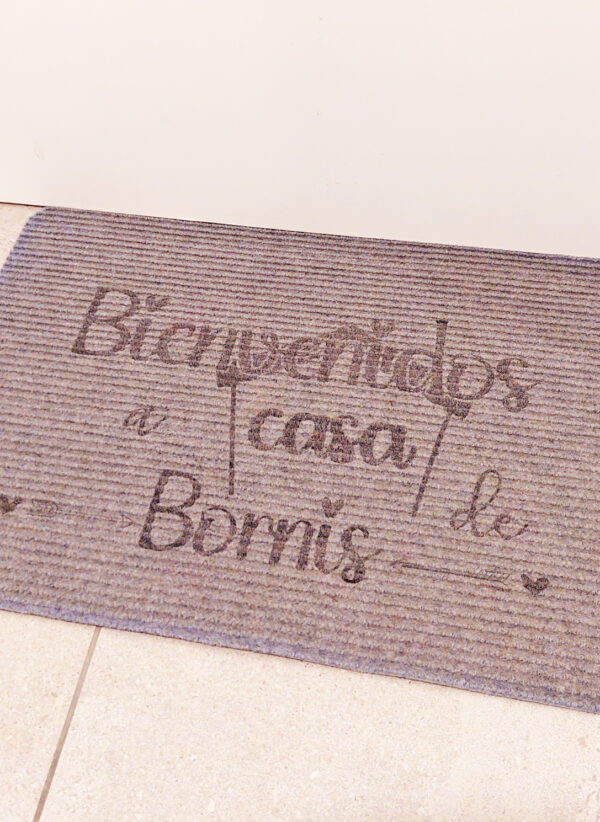 Bienvenidos
a casa de
Bornis